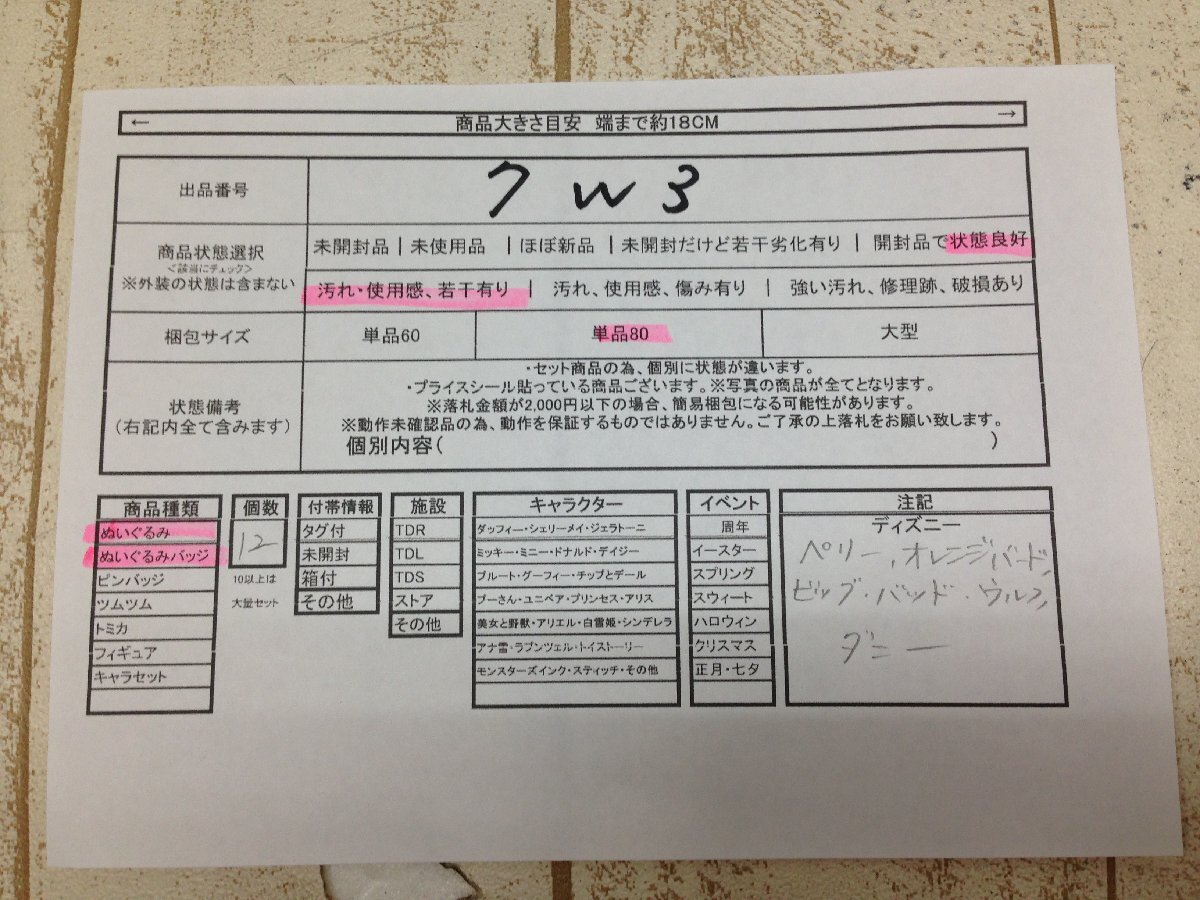 ← 商品大きさ目安 端まで約18CM →
出品番号 7W3
商品状態選択 <該当にチェック> ※外装の状態は含まない
未開封品 | 未使用品 | ほぼ新品 | 未開封だけど若干劣化有り | 開封品で状態良好
汚れ・使用感、若干有り | 汚れ、使用感、傷み有り | 強い汚れ、修理跡、破損あり
梱包サイズ 単品60 単品80 大型
状態備考
(右記内全て含みます)
・セット商品の為、個別に状態が違います。
・プライスシール貼っている商品ございます。※写真の商品が全てとなります。
※落札金額が2,000円以下の場合、簡易梱包になる可能性があります。
※動作未確認品の為、動作を保証するものではありません。ご了承の上落札をお願い致します。
個別内容( )
商品種類
ぬいぐるみ
ぬいぐるみバッジ
ピンバッジ
ツムツム
トミカ
フィギュア
キャラセット
個数
12
10以上は
大量セット
付帯情報
タグ付
未開封
箱付
その他
施設
TDR
TDL
TDS
ストア
その他
キャラクター
ダッフィー・シェリーメイ・ジェラトーニ
ミッキー・ミニー・ドナルド・デイジー
プルート・グーフィー・チップとデール
プーさん・ユニベア・プリンセス・アリス
美女と野獣・アリエル・白雪姫・シンデレラ
アナ雪・ラプンツェル・トイストーリー
モンスターズインク・スティッチ・その他
イベント
周年
イースター
スプリング
スウィート
ハロウィン
クリスマス
正月・七夕
注記
ディズニー
ペリー,オレンジバード,
ビッグ・バッド・ウルフ,
ダニー